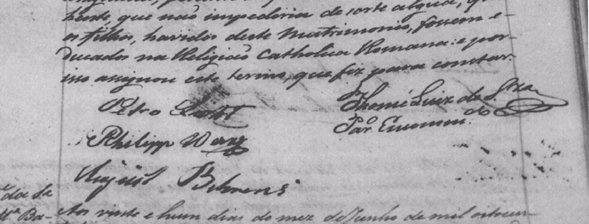 hente, que não impederia de sorte algũa, q.
os filhos, havidos deste Matrimonio, fossem e-
ducados na Religião Catholica Romana: e por-
isso assignou este termo, que fiz para constar.
Petro
Philipp
Thomé Luiz de Sza
Par.º Encomen.do
August Behrens
Aos vinte e hum dias do mez de Junho de mil oitocen-